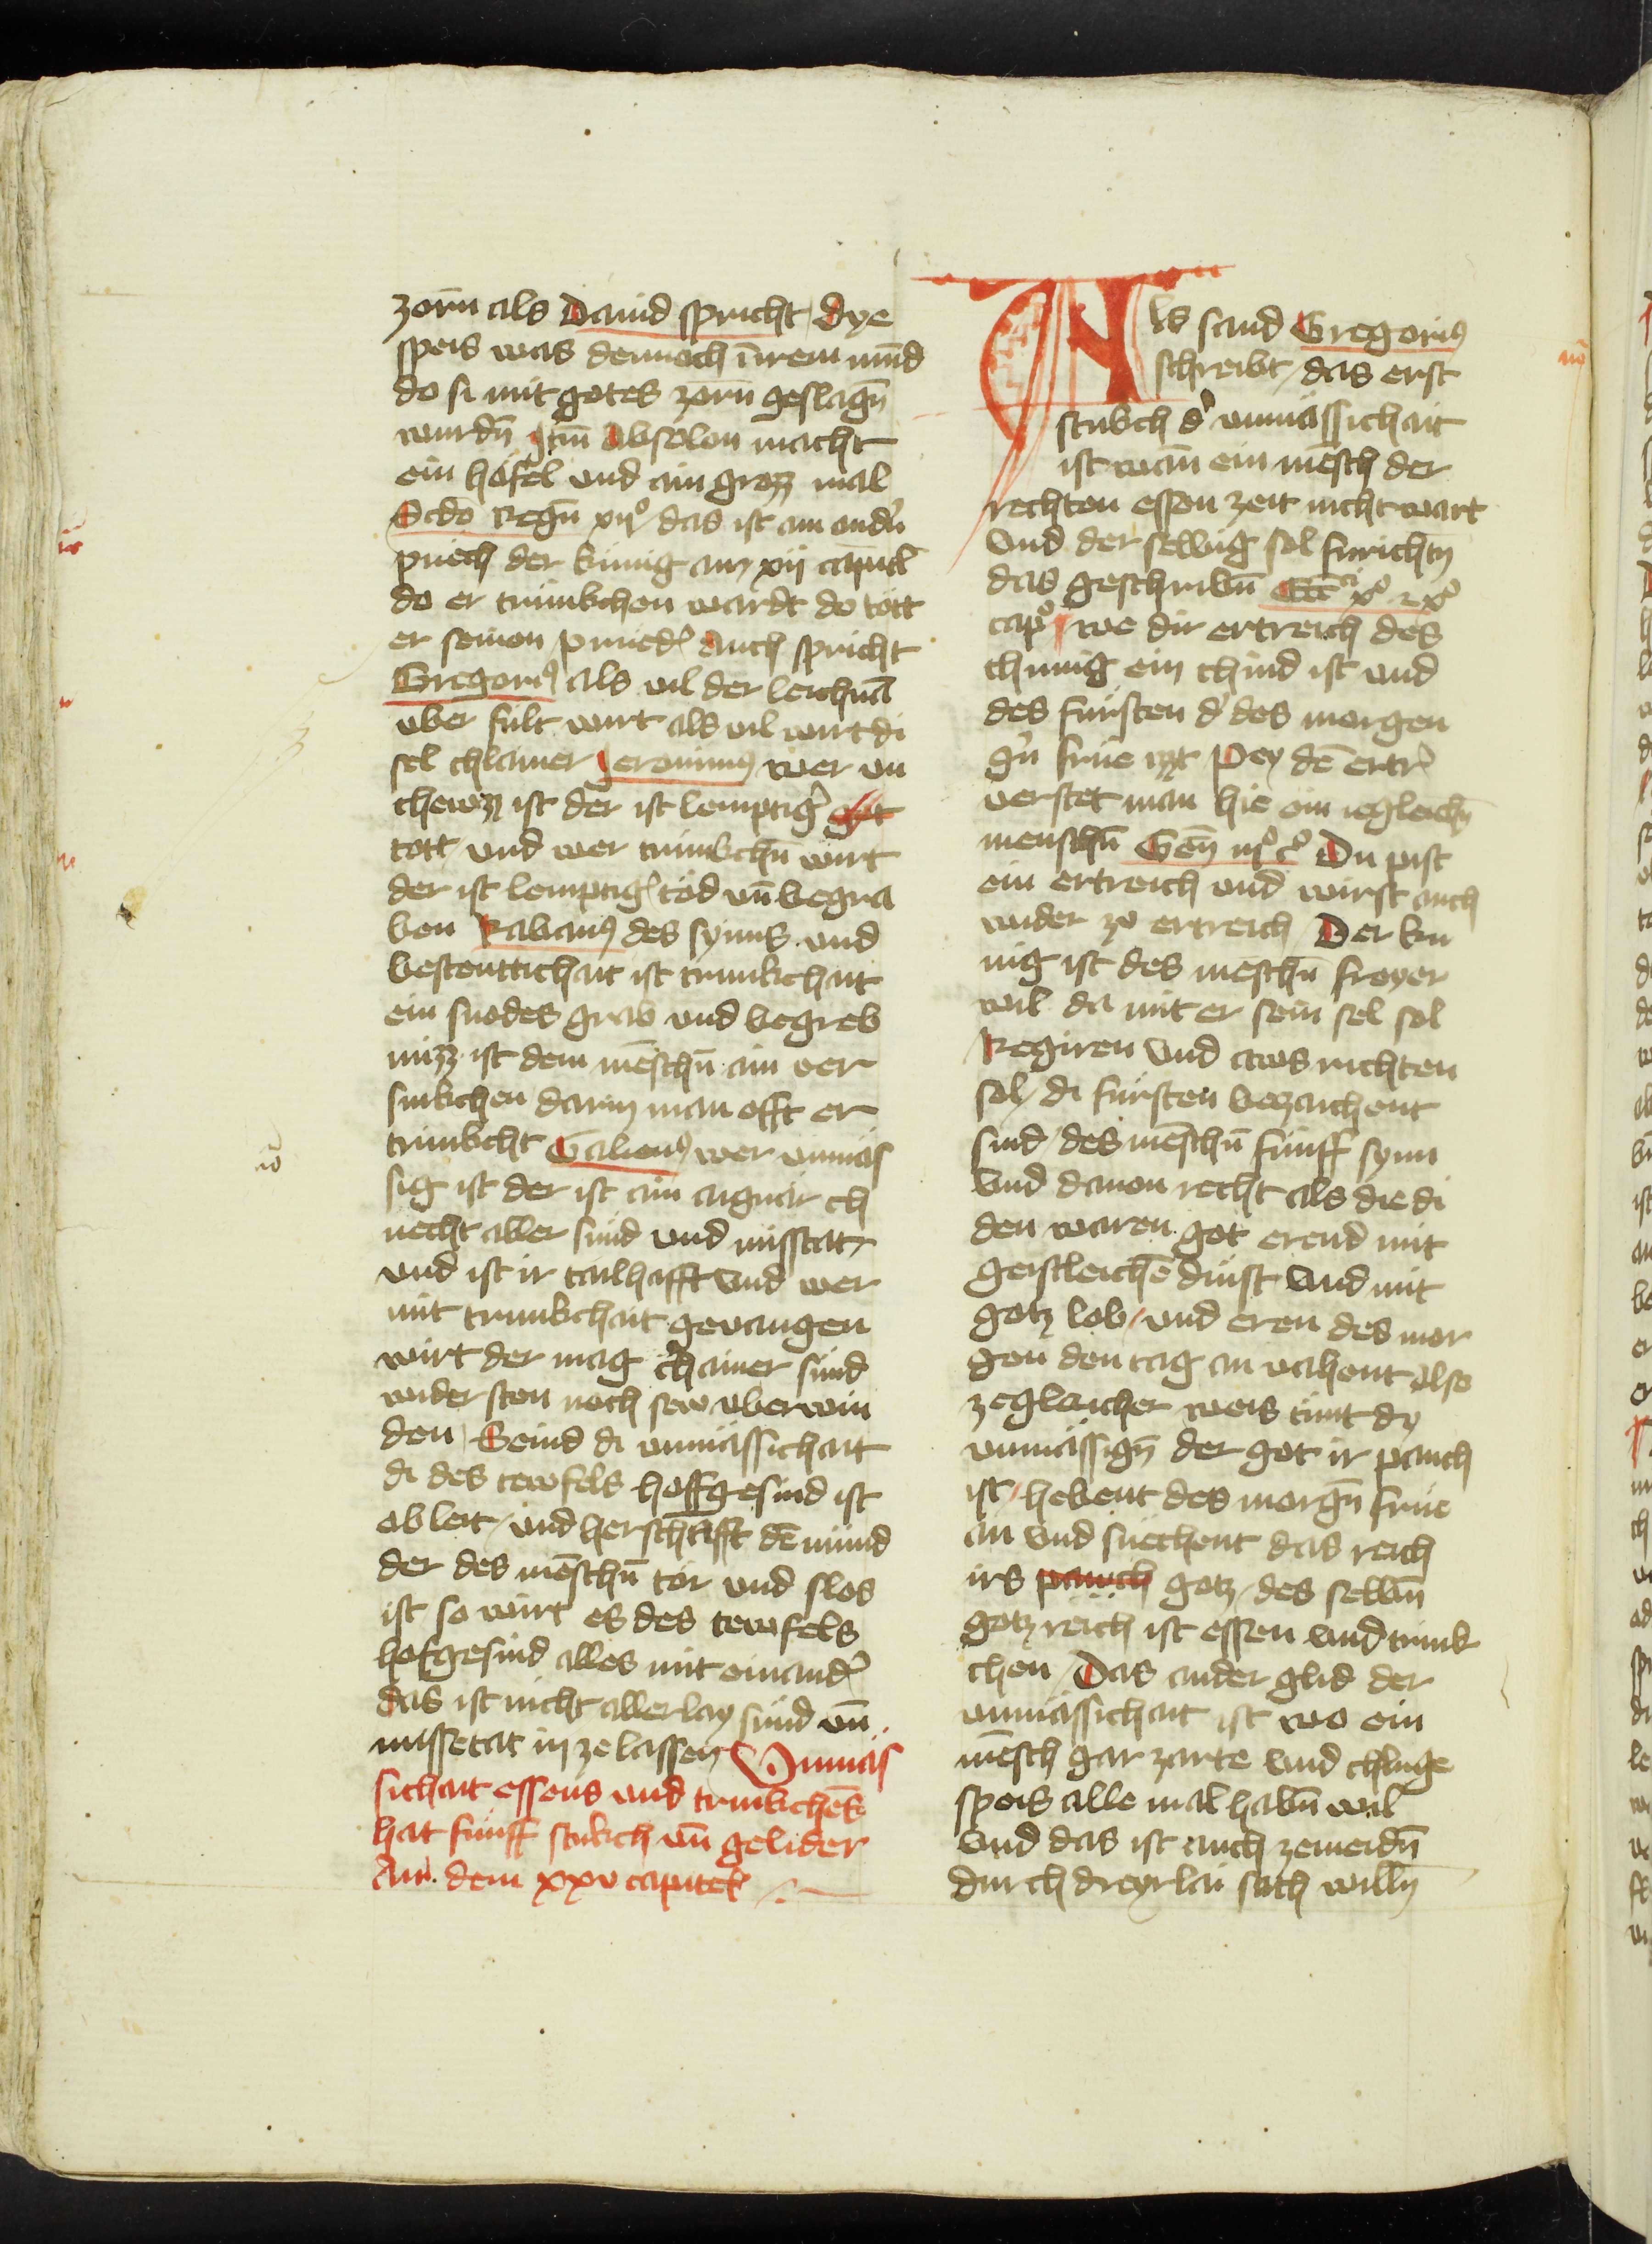 zorn als Dauid spricht / dye
speis was dennoch in irem mūd
do si mit gotes zorn geslagn̄
wurdn̄ Itm̄ Absolon macht
ein höfel vnd ain grozz mal
Scdo Regū xijͦ das ist am andn̄
puech der künig am xij capitl
do er trunkchen wardt do tött
er seinen prueder Auch spricht
Gregoriꝰ als vil der leichnā
vber fült wirt als vil wirt di
sel chlainer Jeronimꝰ wer vn
chewzz ist der ist lemptigr
tott vnd wer trunkchn̄ wirt
der ist lemptigr tod vn̄ begra
ben Rabanꝰ des synns vnd
bestenttichait ist trunkchait
ein snodes grab vnd begreb
nüzz ist dem mēschn̄ ain ver
sinkchen darin man offt er
trinkcht Galienꝰ wer vnmäs
sig ist der ist ain aigner ch
necht aller sünd vnd misstat /
vnd ist ir tailhafft vnd wer
mit trunkchait geuangen
wirt der mag chainer sünd
wider sten noch sew vberwin
den / Seind di vnmässichait
di des tewfels hoffgesind ist
ob leit / vnd herschafft dē münd
der des mēschn̄ tör vnd slos
ist so wirt es des tewfels
hofgesind alles mit einander
das ist nicht allerlay sünd vn̄
missetat in ze lassen Vnmäs
sichait essens vnd trinkchēs
hat fünff stukch vn̄ gelider
Am dem xxv capitel
nō
Als sand Gregoriꝰ
schreibt / das erst
stukch dr vnmässichait
ist wan ein mēsch der
rechten essen zeit nicht wart
Vnd der selbig sol furichtn
das geschribn̄ Ecc xͦ
capͦ we dir ertreich des
chunig ein chind ist vnd
des fürsten dr des morgen
gn̄ früe izzt Pey dē ertr
verstet man hie ein iegleichn
menschn̄ Gen̄ iijͦ cͦ Du pist
ein ertreich vnd wirst auch
wider zu ertreich / Der kü
nig ist des meschn̄ freyer
wil da mit er sein sel sol
Regiren vnd aus richten
sol / di fürsten bezaichent
sind des mēschn̄ fünff synn
Vnd dauon recht als die di
den waren got erend mit
geistleichē dinst vnd mit
gotz lob / vnd eren des mor
gen den tag an vahent also
ze gleicher weis tünt dy
vnmässign̄ der got ir pauch
ist / hebent des morgn̄ früe
an vnd suechent das reich
irs pauch gotz / des selbn̄
gotz reich ist essen vnd trink
chen / Das ander glid der
vnmässichait ist wo ein
mēsch gar zarte vnd chluge
speis alle mal habn̄ wil
Vnd das ist auch zemeidn̄
durch dreyrlai sach willn
nō